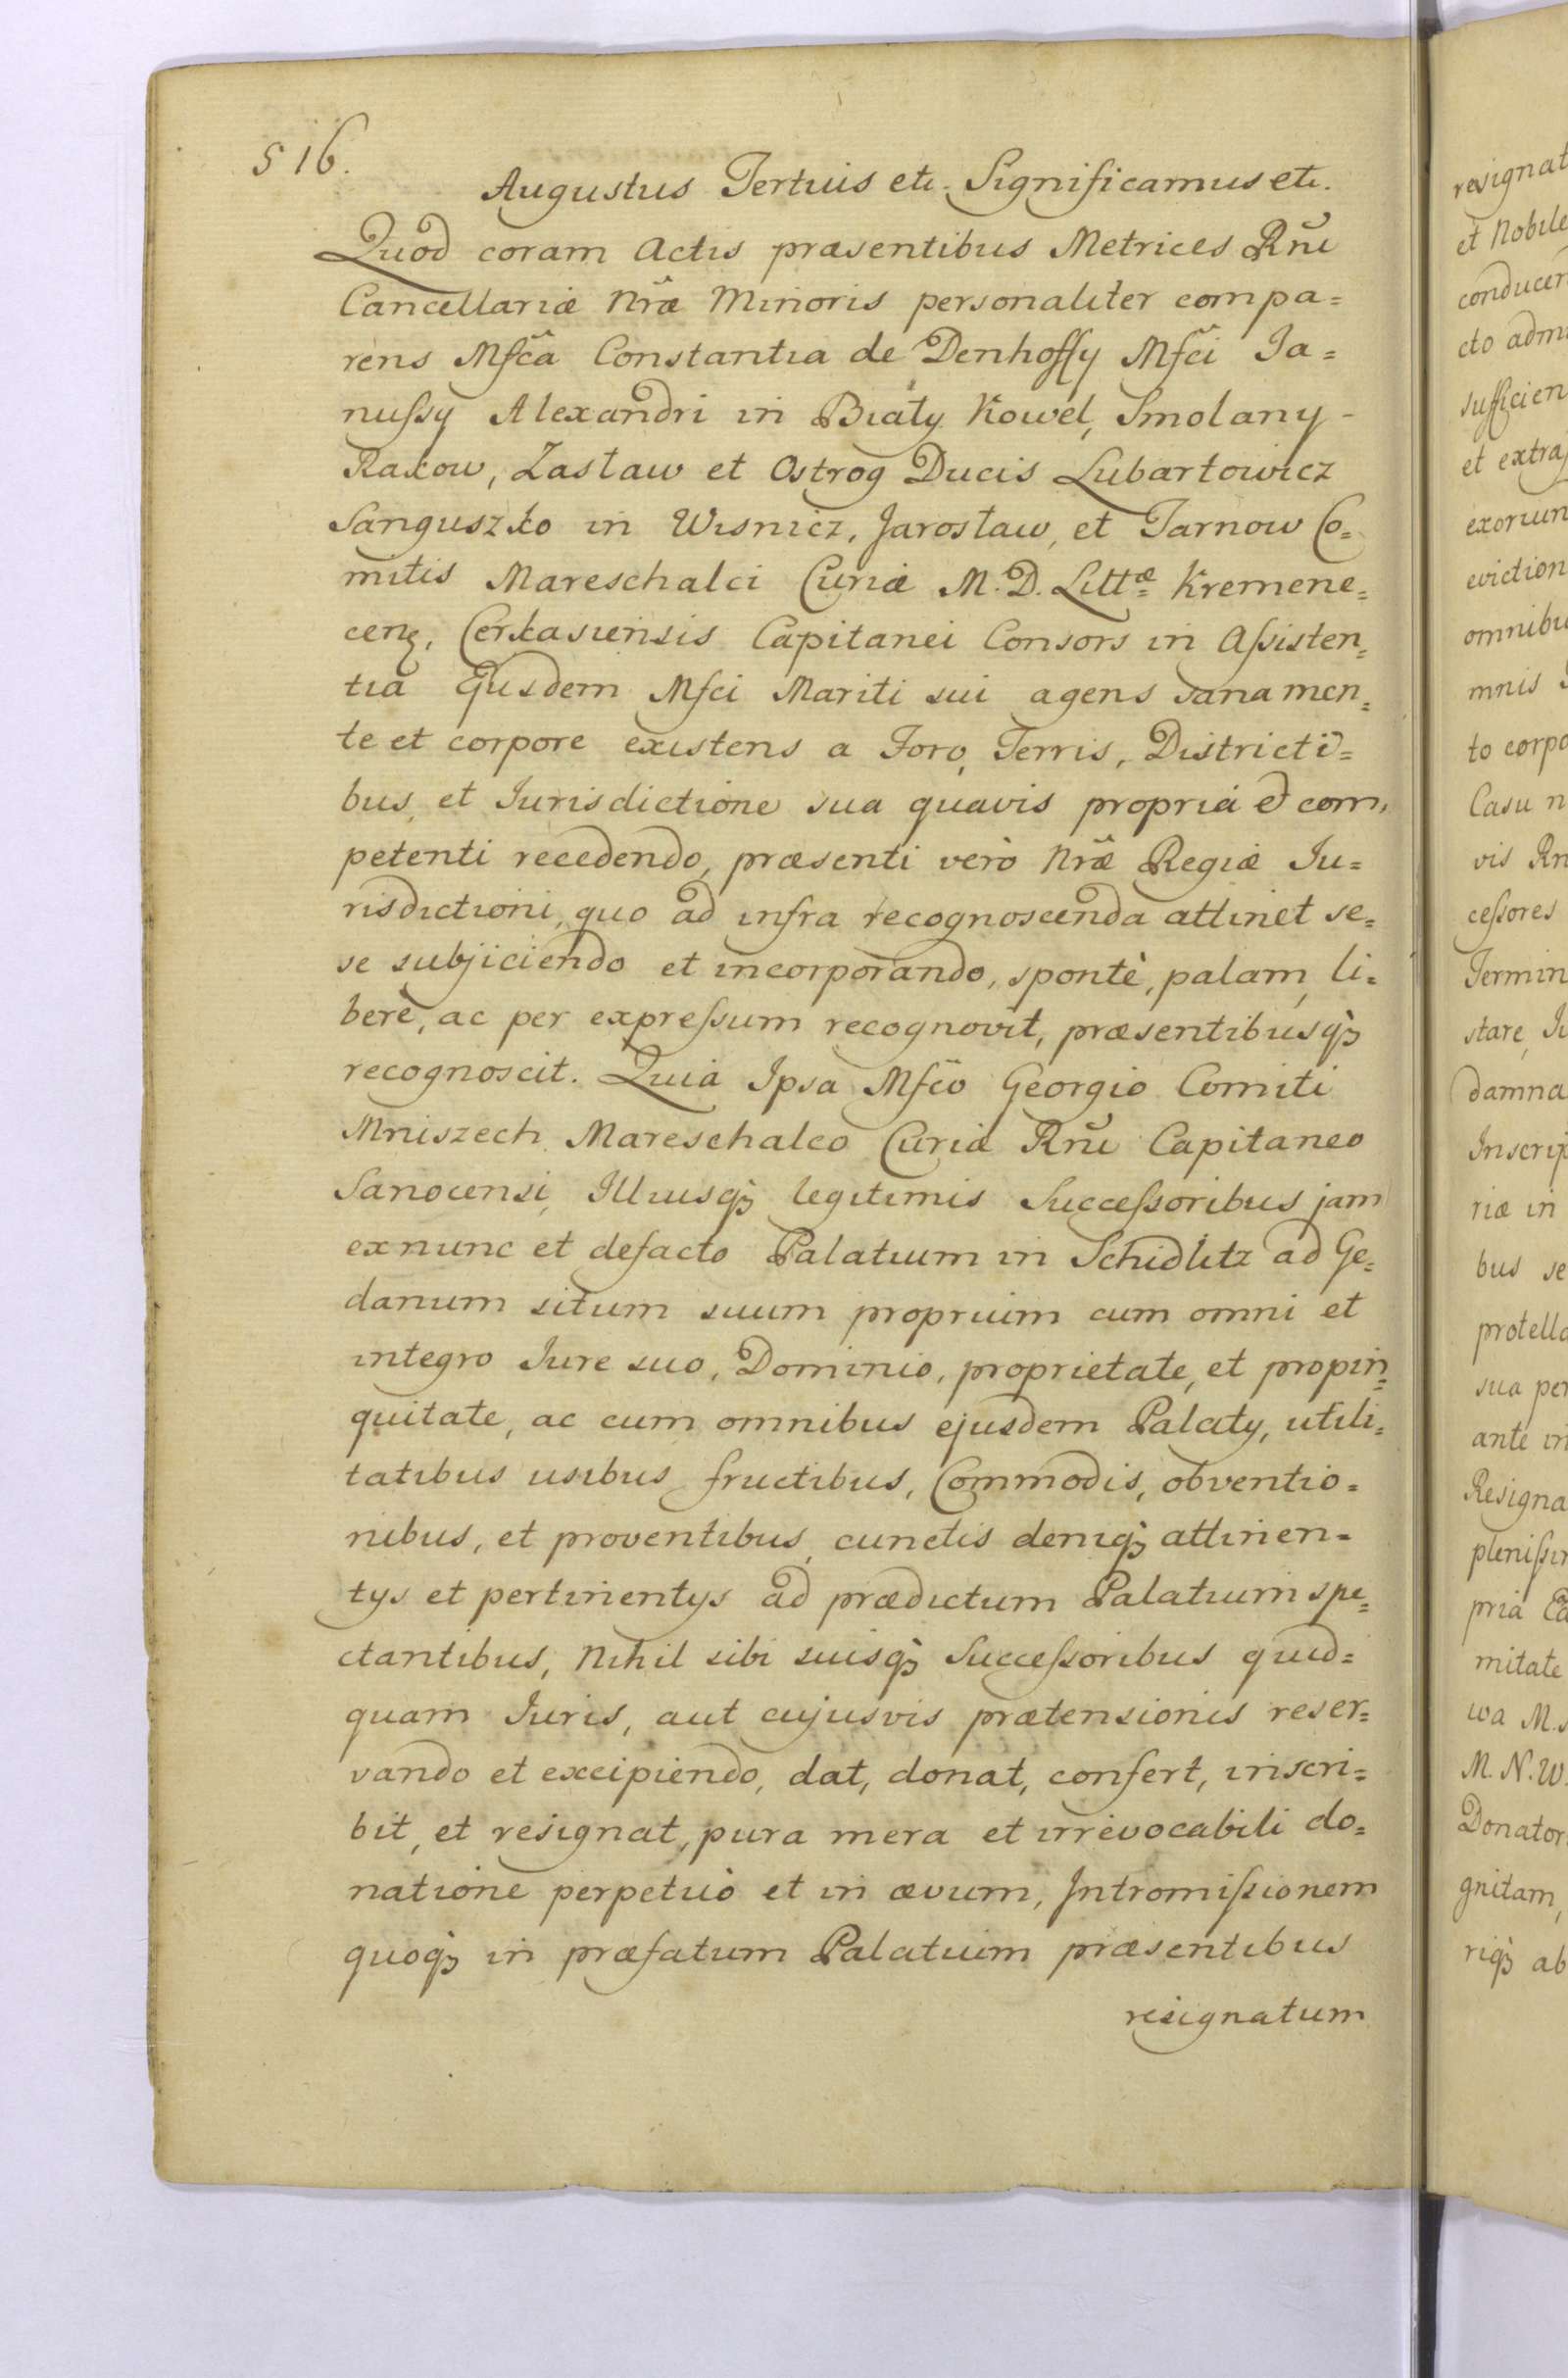 516.
Augustus Tertius etc. Significamus etc.
Quod coram Actis præsentibus Metrices Rñi
Cancellariæ Nrãe Minoris personaliter compa=
rens Mfca Constantia de Denhoffy Mfci Ja=
nuſsy Alexandri in Biały Kowel, Smolany -
Rakow, Zasław et Ostrog Ducis Lubartowicz
Sanguszko in Wisnicz, Jarosław, et Tarnow Co=
mitis Mareschalci Curiæ M. D. Littæ Kremene=
ceñ, Cerkasiensis Capitanei Consors in Aſsisten=
tia Ejusdem Mfci Mariti sui agens sana men=
te et corpore existens a Foro, Terris, Districti=
bus, et Jurisdictione sua quavis propria et com=
petenti recedendo, præsenti verò Nrãe Regiæ Ju=
risdictioni, quo ad infra recognoscenda attinet se=
se subjiciendo et incorporando, spontè, palam, li=
berè, ac per expreſsum recognovit, præsentibusq;
recognoscit. Quia Ipsa Mfco Georgio Comiti
Mniszech Mareschalco Curiæ Rñi Capitaneo
Sanocensi, Illiusq; legitimis Succeſsoribus jam
exnunc et defacto Palatium in Schidlitz ad Ge=
danum situm suum proprium cum omni et
integro Jure suo, Dominio, proprietate, et propin=
quitate, ac cum omnibus ejusdem Palaty, utili=
tatibus usibus fructibus, Commodis, obventio=
nibus, et proventibus, cunctis deniq; attinen=
tys et pertinentys ad prædictum Palatium spe=
ctantibus, Nihil sibi suisq; Succeſsoribus quid=
quam Juris, aut cujusvis prætensionis reser=
vando et excipiendo, dat, donat, confert, inscri=
bit, et resignat, pura mera et irrevocabili do=
natione perpetuò et in ævum, Intromiſsionem
quoq; in præfatum Palatium præsentibus
resignatum
resignat
et Nobile
conducen
cto admi
sufficien
et extraj
exoriun
eviction
omnibu
mnis
to corpo
Casu n
vis Rn
ceſsores
Termin
stare, Ju
damna
Inscrip
riæ in
bus se
protella
sua per
ante in
Resigna
pleniſsi
pria
mitate
wa M.
M. N. W.
Donator
gnitam,
riq; ab